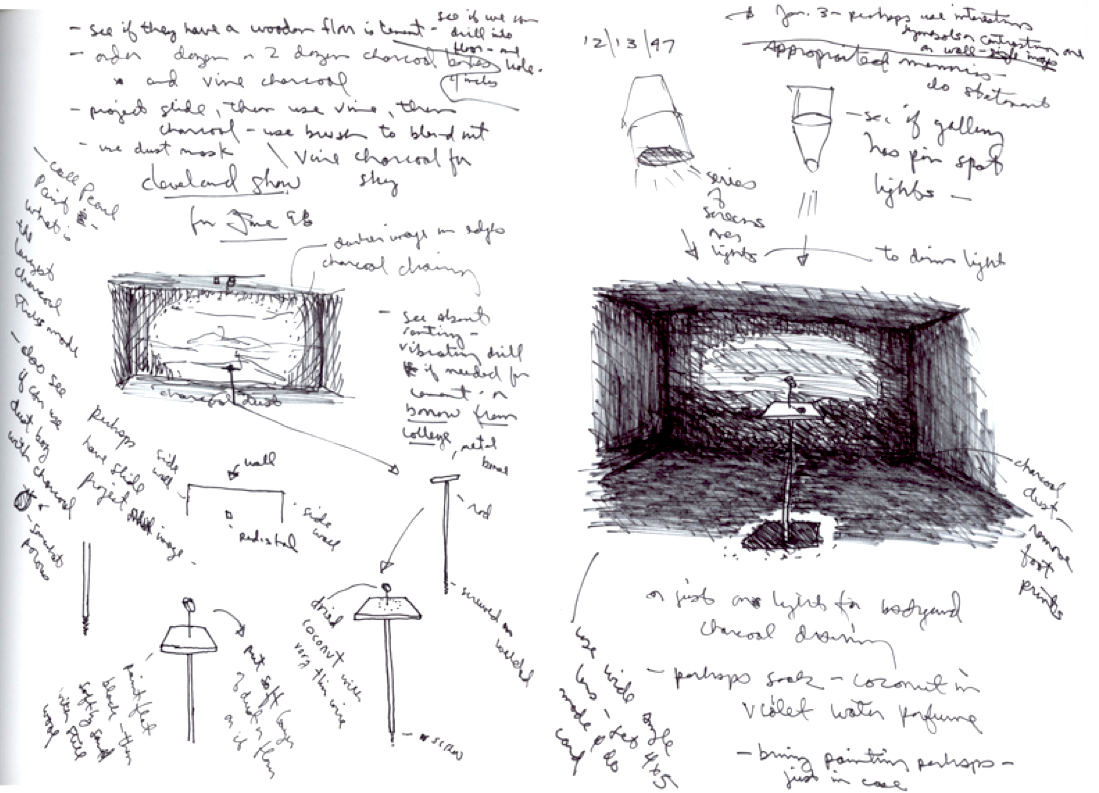 - see if they have a wooden floor is cement -
see if we can
drill into
floor - and
hole.
- order dozen or 2 dozen charcoal boxes
and vine charcoal
- project slide, then use vine, then
charcoal - use brush to blend out
- use dust mask
vine charcoal for
sky
cleveland show
for June 98
- call Pearl
Paint -
what is
the
largest
charcoal
sticks made
- also see
if can use
dust bag
with charcoal
darker image on edges
charcoal drawing
charcoal dust
- see about
renting -
vibrating drill
if needed for
cement - or
borrow from
college, metal
perhaps
have slide
project
image -
side
wall
wall
side
wall
pedistal
rod
screwed or
welded
dried
coconut with
very thin wire
screw
put soft layer
of dust on floor
as if
paint flat
black - then
softly sand
with
wood
12/13/97
Jan. 3 - perhaps use interesting
symbols or contrasting one
on wall - slide image
Appropriated memories -
do statement
- see if gallery
has pin spot
lights -
series
of
screens
over
lights
to dim light
charcoal
dust -
remove
foot
prints
or just on lights for backyard
charcoal drawing
- perhaps soak - coconut in
violet water perfume
- bring painting perhaps -
just in case
use wide angle
lens - 4x5